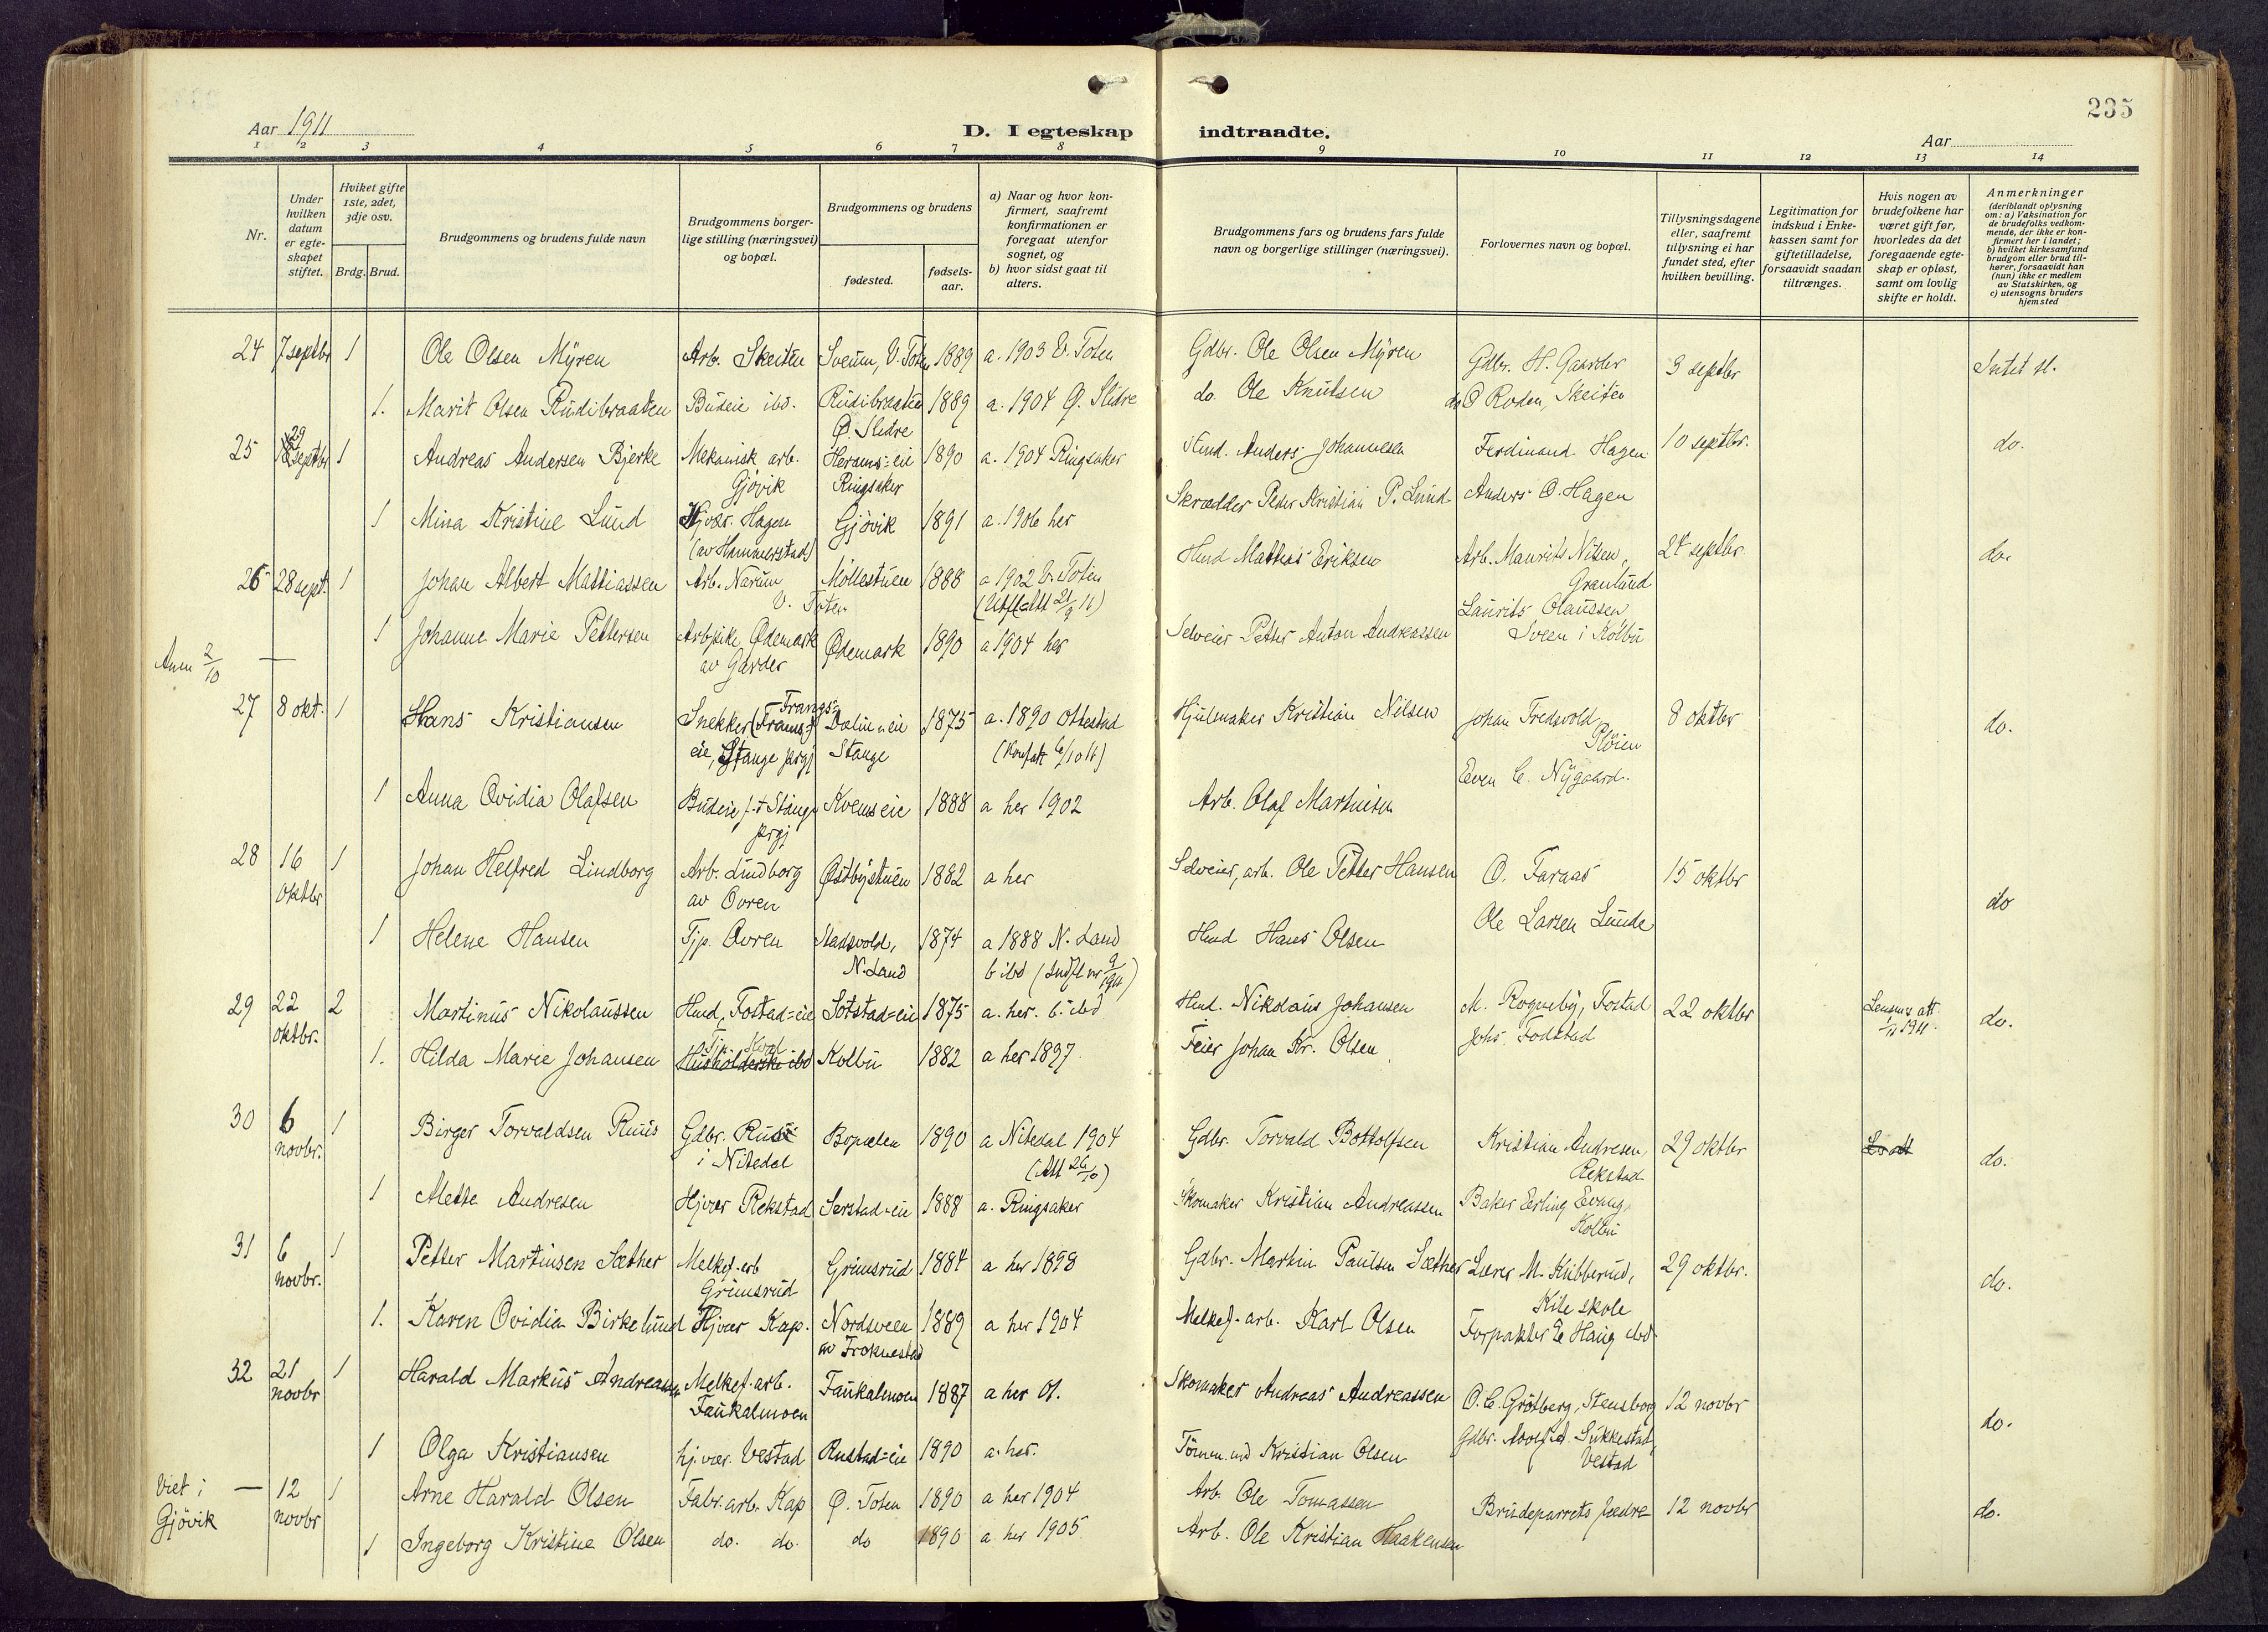 235
Aar 1911
D. I egteskap indtraadte.
Aar
1 2 3 4 5 6 7 8 9 10 11 12 13 14
Nr.
Under hvilken datum er egteskapet stiftet.
Hviket gifte 1ste, 2det, 3dje osv.
Brdg. Brud.
Brudgommens og brudens fulde navn
Brudgommens borgerlige stilling (næringsvei) og bopæl.
Brudgommens og brudens
fødested.
fødselsaar.
a) Naar og hvor konfirmert, saafremt konfirmationen er foregaat utenfor sognet, og
b) hvor sidst gaat til alters.
Brudgommens fars og brudens fars fulde navn og borgerlige stillinger (næringsvei).
Forlovernes navn og bopæl.
Tillysningsdagene eller, saafremt tillysning ei har fundet sted, efter hvilken bevilling.
Legitimation for indskud i Enkekassen samt for giftetilladelse, forsaavidt saadan tiltrænges.
Hvis nogen av brudefolkene har været gift før, hvorledes da det foregaaende egteskap er opløst, samt om lovlig skifte er holdt.
Anmerkninger (deriblandt oplysning om: a) Vaksination for de brudefolks vedkommende, der ikke er konfirmert her i landet; b) hvilket kirkesamfund brudgom eller brud tilhører, forsaavidt han (hun) ikke er medlem av Statskirken, og c) utensogns bruders hjemsted
24 7 septbr 1 Ole Olsen Myren Arb. Skeiten Sveum, V. Toten 1889 a. 1903 V. Toten Gdbr. Ole Olsen Myren Gdbr. H. Gaarder 3 septbr Intet sl.
1. Marit Olsen Rudibraaten Budeie ibd. Rudibraaten Ø. Slidre 1889 a. 1904 Ø. Slidre do. Ole Knutsen do O Roden, Skeiten
25 29 septbr 1 Andreas Andersen Bjerke Mekanisk arb. Gjøvik Herams=eie Ringsaker 1890 a. 1904 Ringsaker Hmd. Anders Johannesen Ferdinand Hagen 10 septbr. do.
1 Mina Kristine Lund Hjvær. Hagen (av Hammerstad) Gjøvik 1891 a. 1906 her Skrædder Peder Kristian P. Lund Anders O. Hagen
26 28 sept. 1 Johan Albert Mattiassen Arb. Narum V. Toten Møllestuen 1888 a 1902 V. Toten Hmd Mathias Eriksen Arb. Maurits Nilsen, Granlund 24 septbr. do.
1 Johanne Marie Pettersen Arbpike Ødemark av Garder Ødemark 1890 a 1904 her Selveier Petter Anton Andreassen Laurits Olaussen Sveen i Kolbu
Anm 2/10 —
27 8 okt. 1 Hans Kristiansen Snekker Frangs=eie, Stange prgj Dalin=eie Stange 1875 a. 1890 Ottestad (Konfatt 6/10 11) Hjulmaker Kristian Nilsen Johan Fredsvold, Pløien 8 oktbr do.
1 Anna Ovidia Olafsen Budeie Stange prgj Kvemseie 1888 a her 1902 Arb. Olaf Martinsen Even C. Nygaard.
28 16 oktbr 1 Johan Helfred Lindborg Arb. Lindborg av Øvren Østbystuen 1882 a her Selveier, arb. Ole Petter Hansen O. Faraas 15 oktbr do
1 Helene Hansen Tjp. Øvren Stadsvold, N. Land 1874 a 1888 N. Land b ibd Hmd Hans Olsen Ole Larsen Lunde
29 22 oktbr. 2 Martinus Nikolaussen Hmd, Fostad=eie Sotstad=eie 1875 a. her. b. ibd Hmd. Nikolaus Johansen M. Rogneby, Fostad 22 oktbr Lensm att 1911. do.
1. Hilda Marie Johansen Husholderske ibd Kolbu 1882 a her 1897. Feier Johan Kr. Olsen Johs. Fodstad
30 6 novbr. 1 Birger Torvaldsen Ruus Gdbr. Ruus i Nitedal Bopælen 1890 a Nitedal 1904 (Att 26/10) Gdbr. Torvald Bottolfsen Kristian Andresen, Rekstad 29 oktbr do.
1 Mette Andresen Hjvær Rekstad Sørstad=eie 1888 a. Ringsaker Skomaker Kristian Andreassen Baker Erling Evang, Kolbu
31 6 novbr. 1 Petter Martinsen Sæther Melkef. arb Grimsrud Grimsrud 1884 a her 1898 Gdbr. Martin Paulsen Sæther Lærer M. Kubberud, Kile skole 29 oktbr. do.
1. Karen Ovidia Birkelund Hjvær Kap. Nordsveen av Froknestad 1889 a her 1904 Melkef. arb. Karl Olsen Forpakter E Haug ibd.
32 21 novbr 1 Harald Markus Andreassen Melkef. arb. Faukalmoen Faukalmoen 1887 a her 01. Skomaker Andreas Andreassen O. C. Grøtberg, Stensborg 12 novbr do.
1 Olga Kristiansen hj.vær. Vestad Rustad=eie 1890 a. her. Kristian Olsen Gdbr. Adolf Sukkestad, Vestad
Viet i Gjøvik — 12 novbr 1 Arne Harald Olsen Fabr. arb. Kap Ø. Toten 1890 a her 1904 Arb. Ole Tomassen Brudeparrets fædre 12 novbr do.
1 Ingeborg Kristine Olsen do. do. do 1890 a her 1905. Arb. Ole Kristian Haakensen